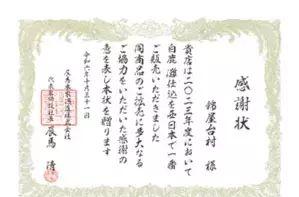 感謝状
錦屋台村 様
貴店は二〇二三年度において
白鹿 灘仕込を全日本で一番
ご販売いただきました
同商品のご拡売に多大なる
ご協力をいただいた感謝の
意を表し本状を贈ります
令和六年十月三十一日
辰馬本家酒造株式会社
代表取締役社長 辰馬 清